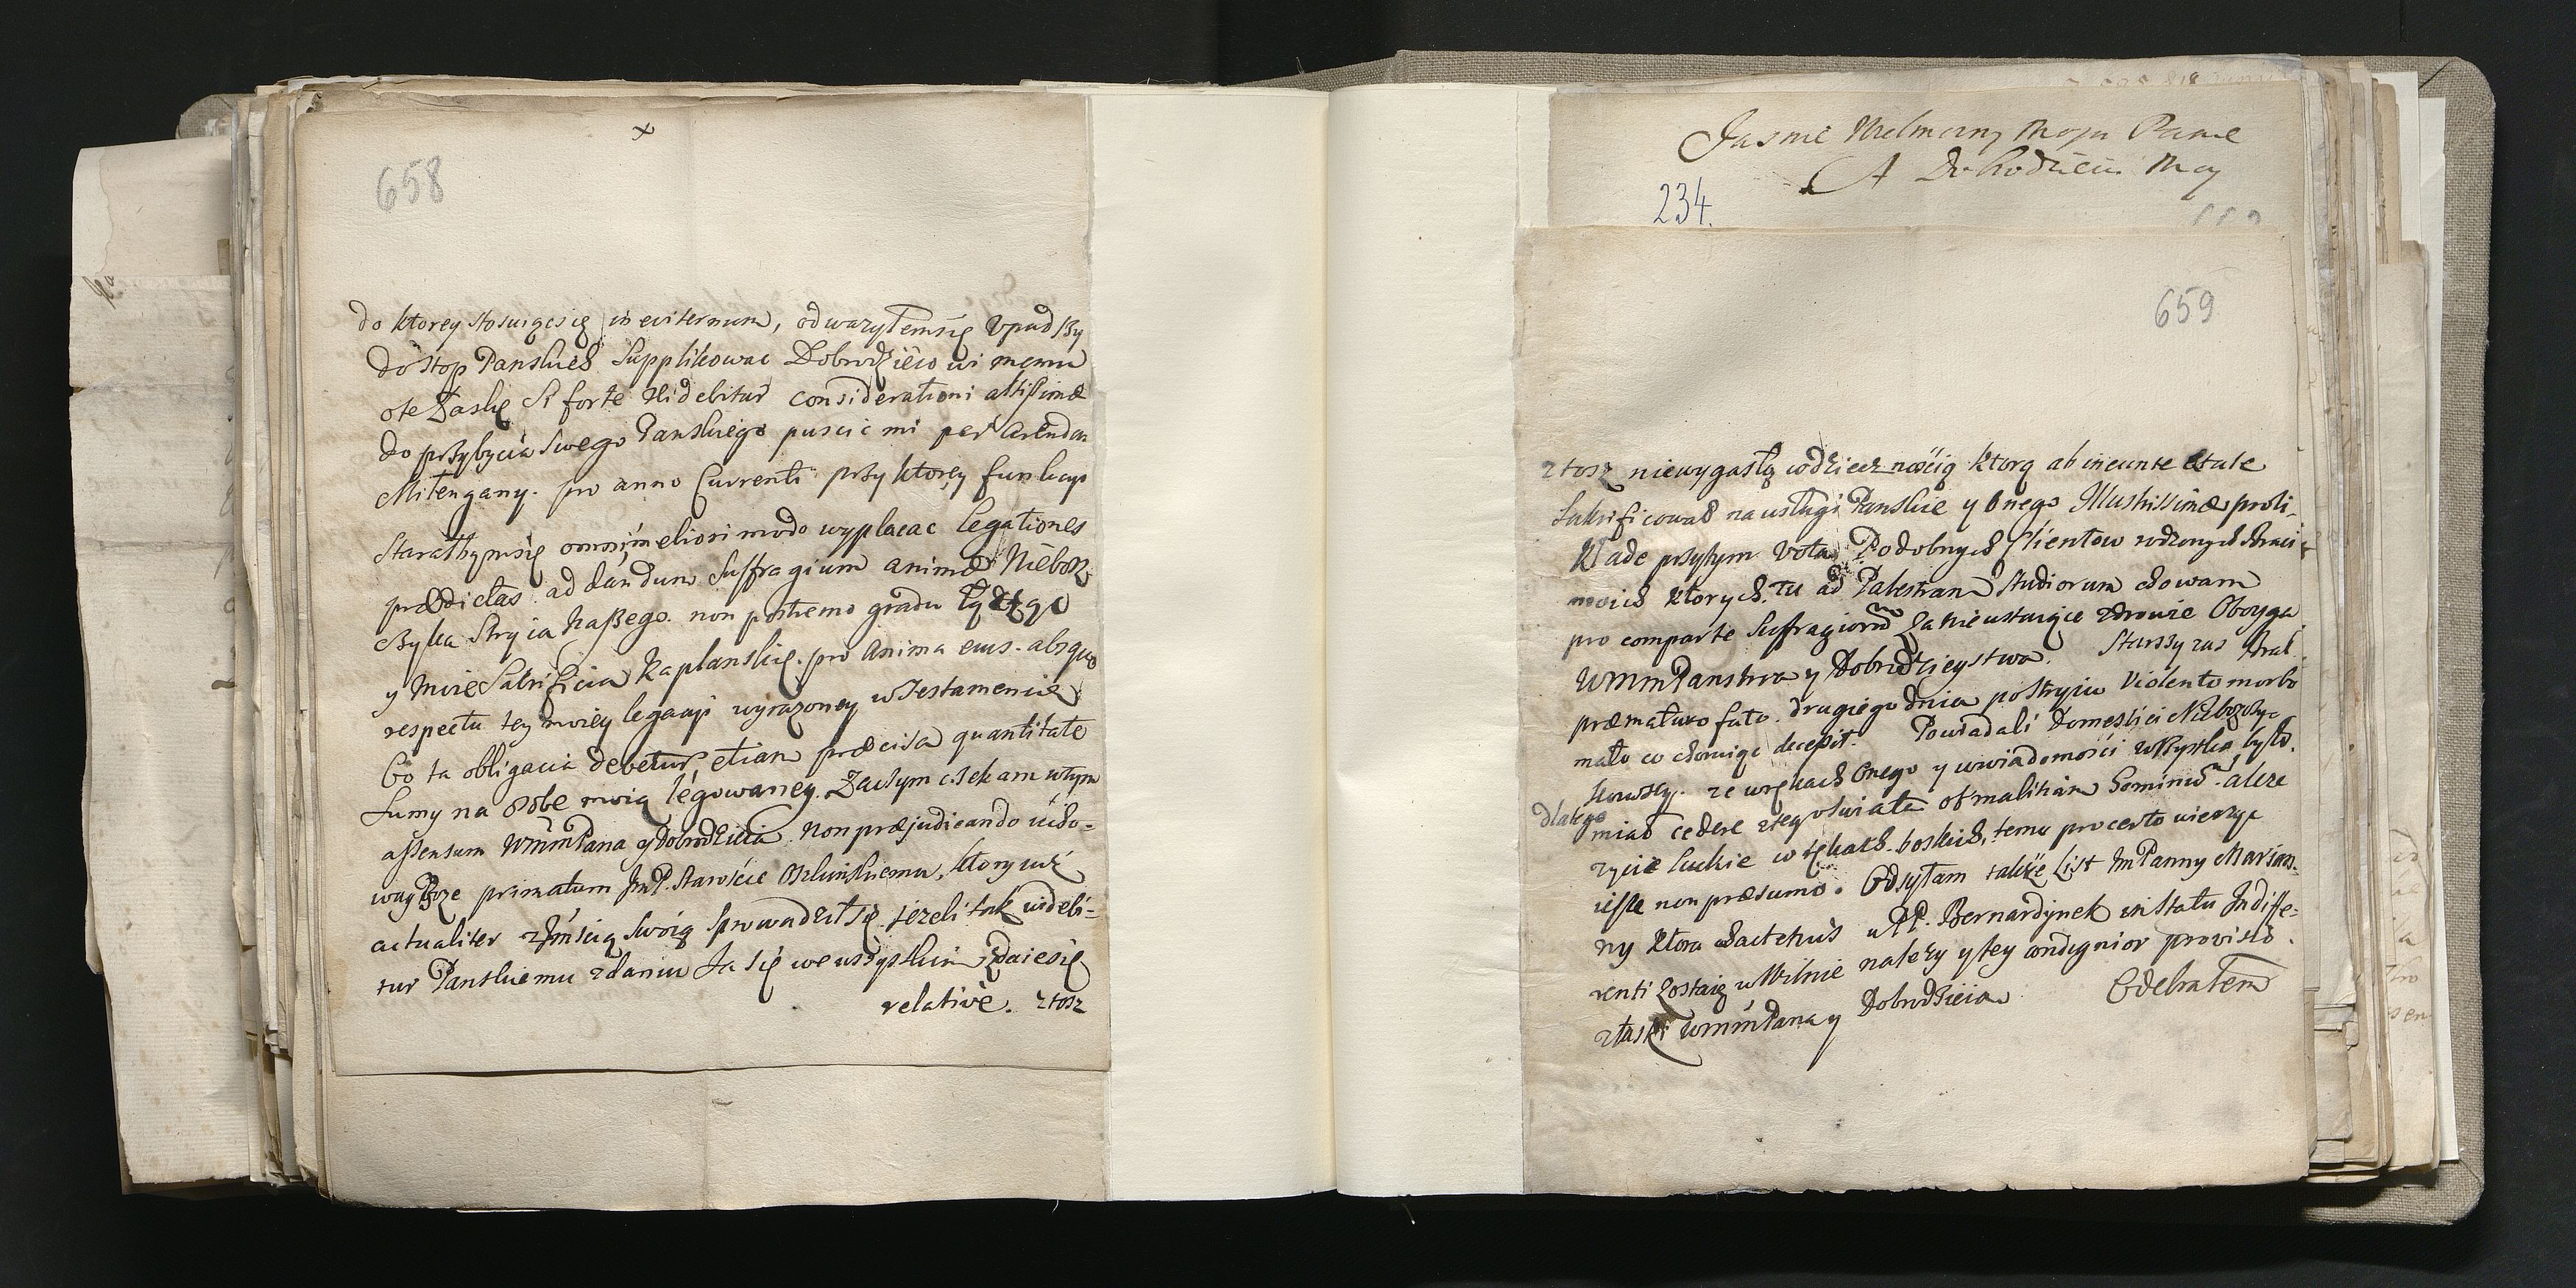 x
658
do ktorey stosuiąc się in eviternum, odwazyłemsię Vpadszy
do stop Panskich Supplikowac Dobrodzieiowi memu
ote Łaskę Si forte videbitur considerationi altissimæ
do przybycia Swego Panskiego puscic mi per Arendam
Mitengany. pro anno Currenti przy ktorey funkcyi
Starałbymsię omni meliori modo wypłacac legationes
prædictas ad dandum Suffragium animæ Niebosz-
czyka Stryia Naszego. non postremo gradu
y moie Sakrificia Kapłanskie. pro Anima eius. absque
respectu tey moiey legacyi wyrazoney w Testamencie
Co ta obligacia debetur etiam præcisa quantitate
Sumy na osobe moią legowaney. Zaczym czekam wtym
assensum WmmPana y Dobrodzieia. Non præjudicando
primatum JmP. Staroscie Oszminskiemu, ktory iuż
actualiter zJmscią Swoią Sprowadził się. jezeli tak videbi-
tur Panskiemu zdaniu Ja się we wszystkim zdaiesię
relative. ztosz
Jasnie Wielmozny Moscy Panie
A Dobrodzieiu Moy
234.
659
ztosz niewygasłą wdziecznością ktorą ab ineunte etate
Sakrificował na usługi Panskie y Onego Illustrissimæ proli,
Kłade przytym Vota Podobnych Clientow rodzonych Braci
moich ktorych tu ad Palestram Studiorum chowam
pro comparte Suffragiorum Za nieustaiące zdrowie Oboyga
WmmPanstwa y Dobrodzieystwa. Starszy zas Brat
præmaturo fato. drugiego dnia po Stryiu Violento morbo
mało co choruiąc decessit. Powiadali Domestici Nieboszczy-
kowscy. ze wrękach Onego y wwiadomosci wszystko było.
dlatego miał cedere ztego swiata ob malitiam hominum. aleze
zycie ludzkie w rękach boskich, temu pro certo wierzyc
non præsumo. Odsyłam takze List JmPanny Marian-
ny ktora hactenus u PP. Bernardynek in statu Indiffe-
renti Zostaię w Wilnie nalezy y tey condignior provisio.
złaski WmmPana y Dobrodzieia. Odebrałem